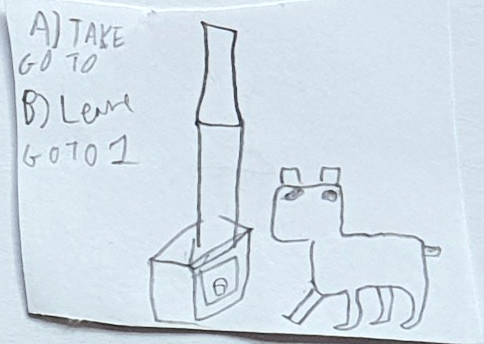 A) TAKE
GO TO
B) Leave
GOTO 1